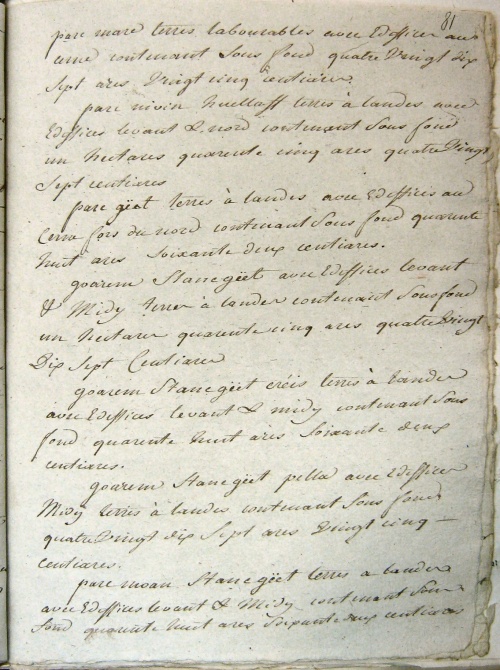 81
parc marc terres labourables avec Edifices aux
cerne contenant Sous fond quatre Vingt dix
Sept ares Vingt cinq centiares
parc nivin huellaff terres à landes avec
Edeffices levant & nord contenant Sous fond
un hectares quarente cinq ares quatre Vingt
Sept centiares
parc geet terres à landes avec Edeffices au
Cerne fors du nord contenant Sous fond quarente
huit ares Soixante deux centiares.
goarem Stancgëet avec Edeffices levant
& Midy terres à landes contenant Sous fond
un hectares quarente cinq ares quatre Vingt
Dix Sept Centiares
goarem Stancgëet creis terres à landes
avec Edeffices levant & midy contenant Sous
fond quarente huit ares Soixante deux
centiares.
goarem Stancgëet pella avec Edeffices
Midy terres à landes contenant Sous fond
quatre Vingt dix Sept ares Vingt cinq —
centiares.
parc moan Stancgëet terres a landes
avec Edeffices levant & Midy contenant Sous
fond quarente huit ares Soixante deux centiares